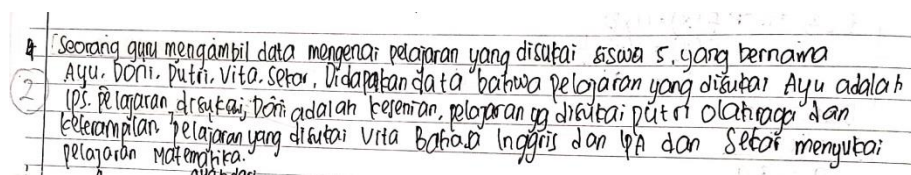 Seorang guru mengambil data mengenai pelajaran yang disukai siswa 5, yang bernama
2 Ayu. Doni. Putri. Vita. Sekar. Didapatkan data bahwa pelajaran yang disukai Ayu adalah
IPS. Pelajaran disukai, Doni adalah kesenian, pelajaran yg disukai putri Olahraga dan
keterampilan, pelajaran yang disukai Vita Bahasa Inggris dan IPA dan Sekar menyukai
pelajaran Matematika.